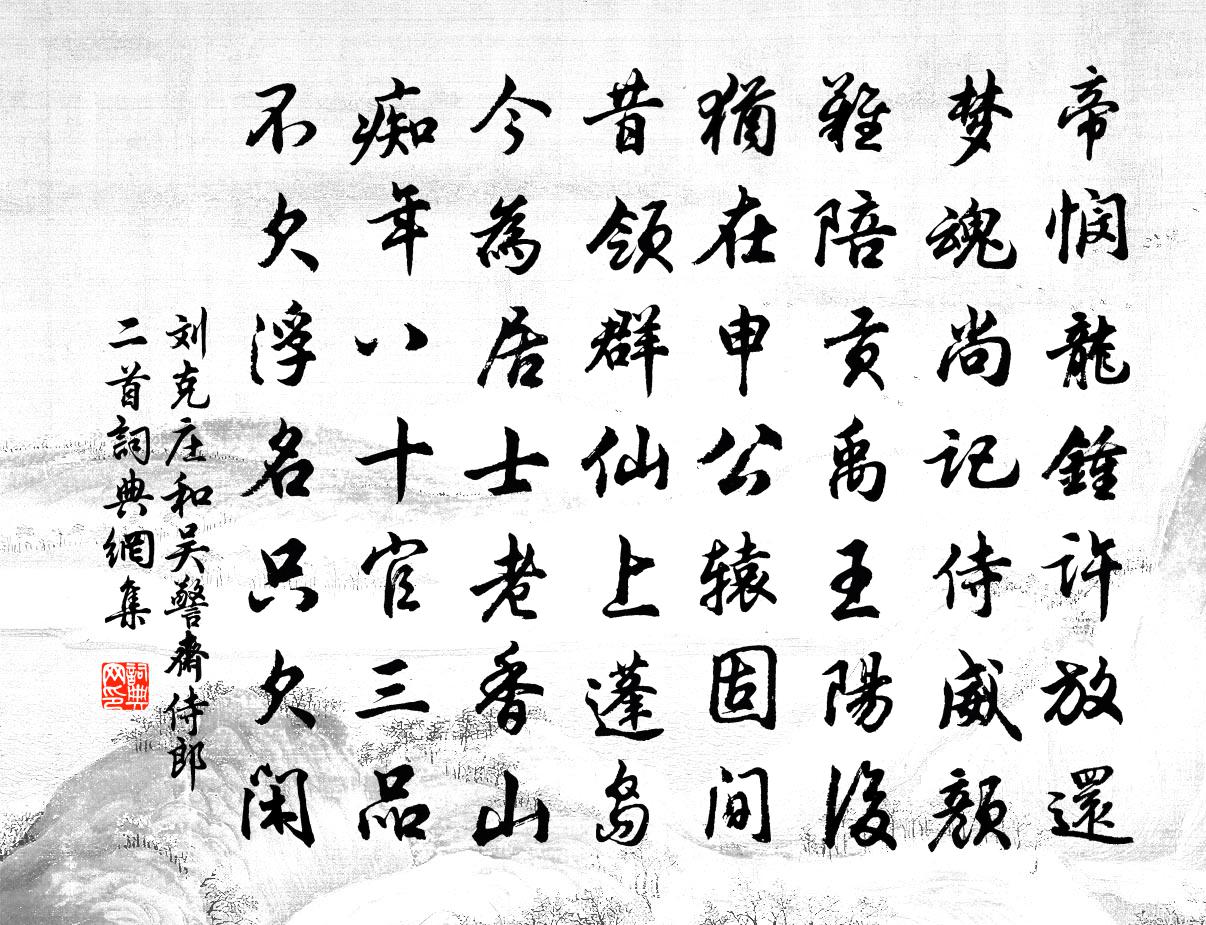 帝悯龍鍾許放還
梦魂尚记侍威颜
難陪贡禹王陽後
猶在申公辕固間
昔领群仙上蓬岛
今為居士老香山
痴年八十官三品
不欠浮名只欠闲
刘克庄和吴警齋侍郎
二首詞典網集
詞典
网印